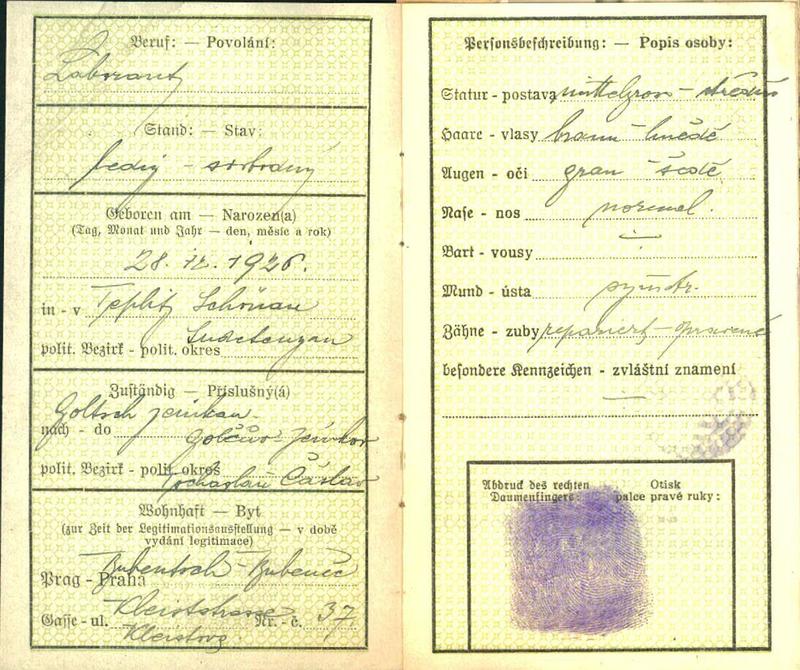 Beruf: — Povolání:
Laborant
Stand: — Stav:
ledig - svobodný
Geboren am — Narozen(a)
(Tag, Monat und Jahr — den, měsíc a rok)
28. 1926.
in - v Teplitz Schönau
Sudetengau
polit. Bezirk - polit. okres
Zuständig — Příslušný(á)
Goltsch Jenikau
nach - do Golčův Jeníkov
polit. Bezirk - polit. okres Tschaslau Čáslav
Wohnhaft — Byt
(zur Zeit der Legitimationsausstellung — v době
vydání legitimace)
Bubentsch - Bubeneč
Prag - Praha
Kleiststrasse
Gasse - ul. Nr. - č. 37
Kleistova
Personsbeschreibung: — Popis osoby:
Statur - postava mittelgross - střední
Haare - vlasy braun - hnědé
Augen - oči grau - šedé
Nase - nos normal.
Bart - vousy
Mund - ústa symetr.
Zähne - zuby repariert - spravené
besondere Kennzeichen - zvláštní znamení
Abdruck des rechten Daumenfingers:
Otisk palce pravé ruky: